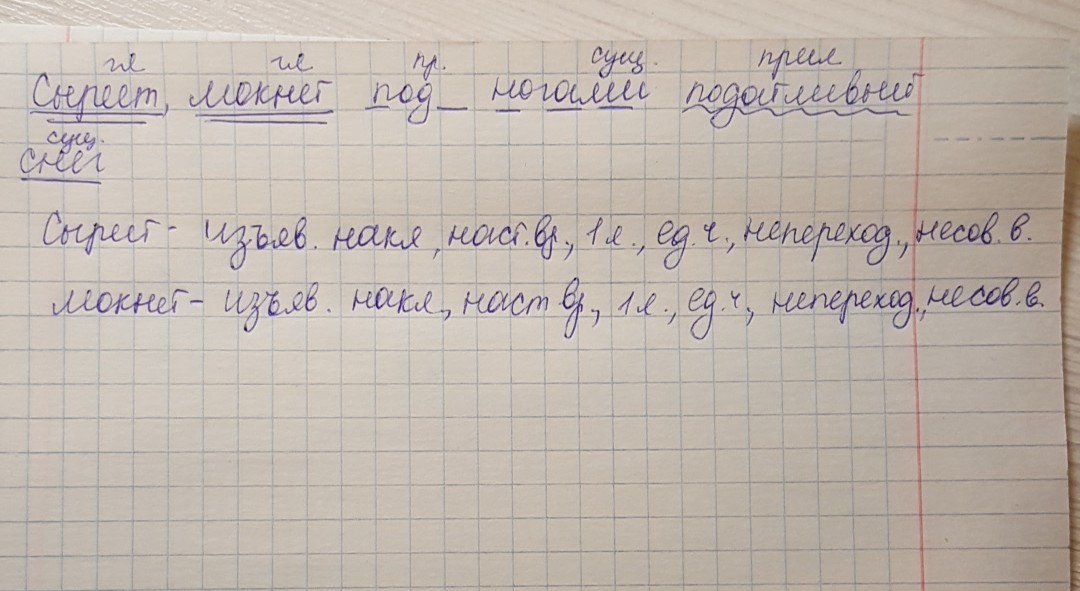 гл гл пр. сущ. прил
Сыреет, мокнет под ногами податливый
сущ.
снег
Сыреет - изъяв. накл, наст. вр., 1 л., ед. ч., непереход., несов. в.
мокнет - изъяв. накл, наст вр., 1 л., ед. ч, непереход., несов. в.